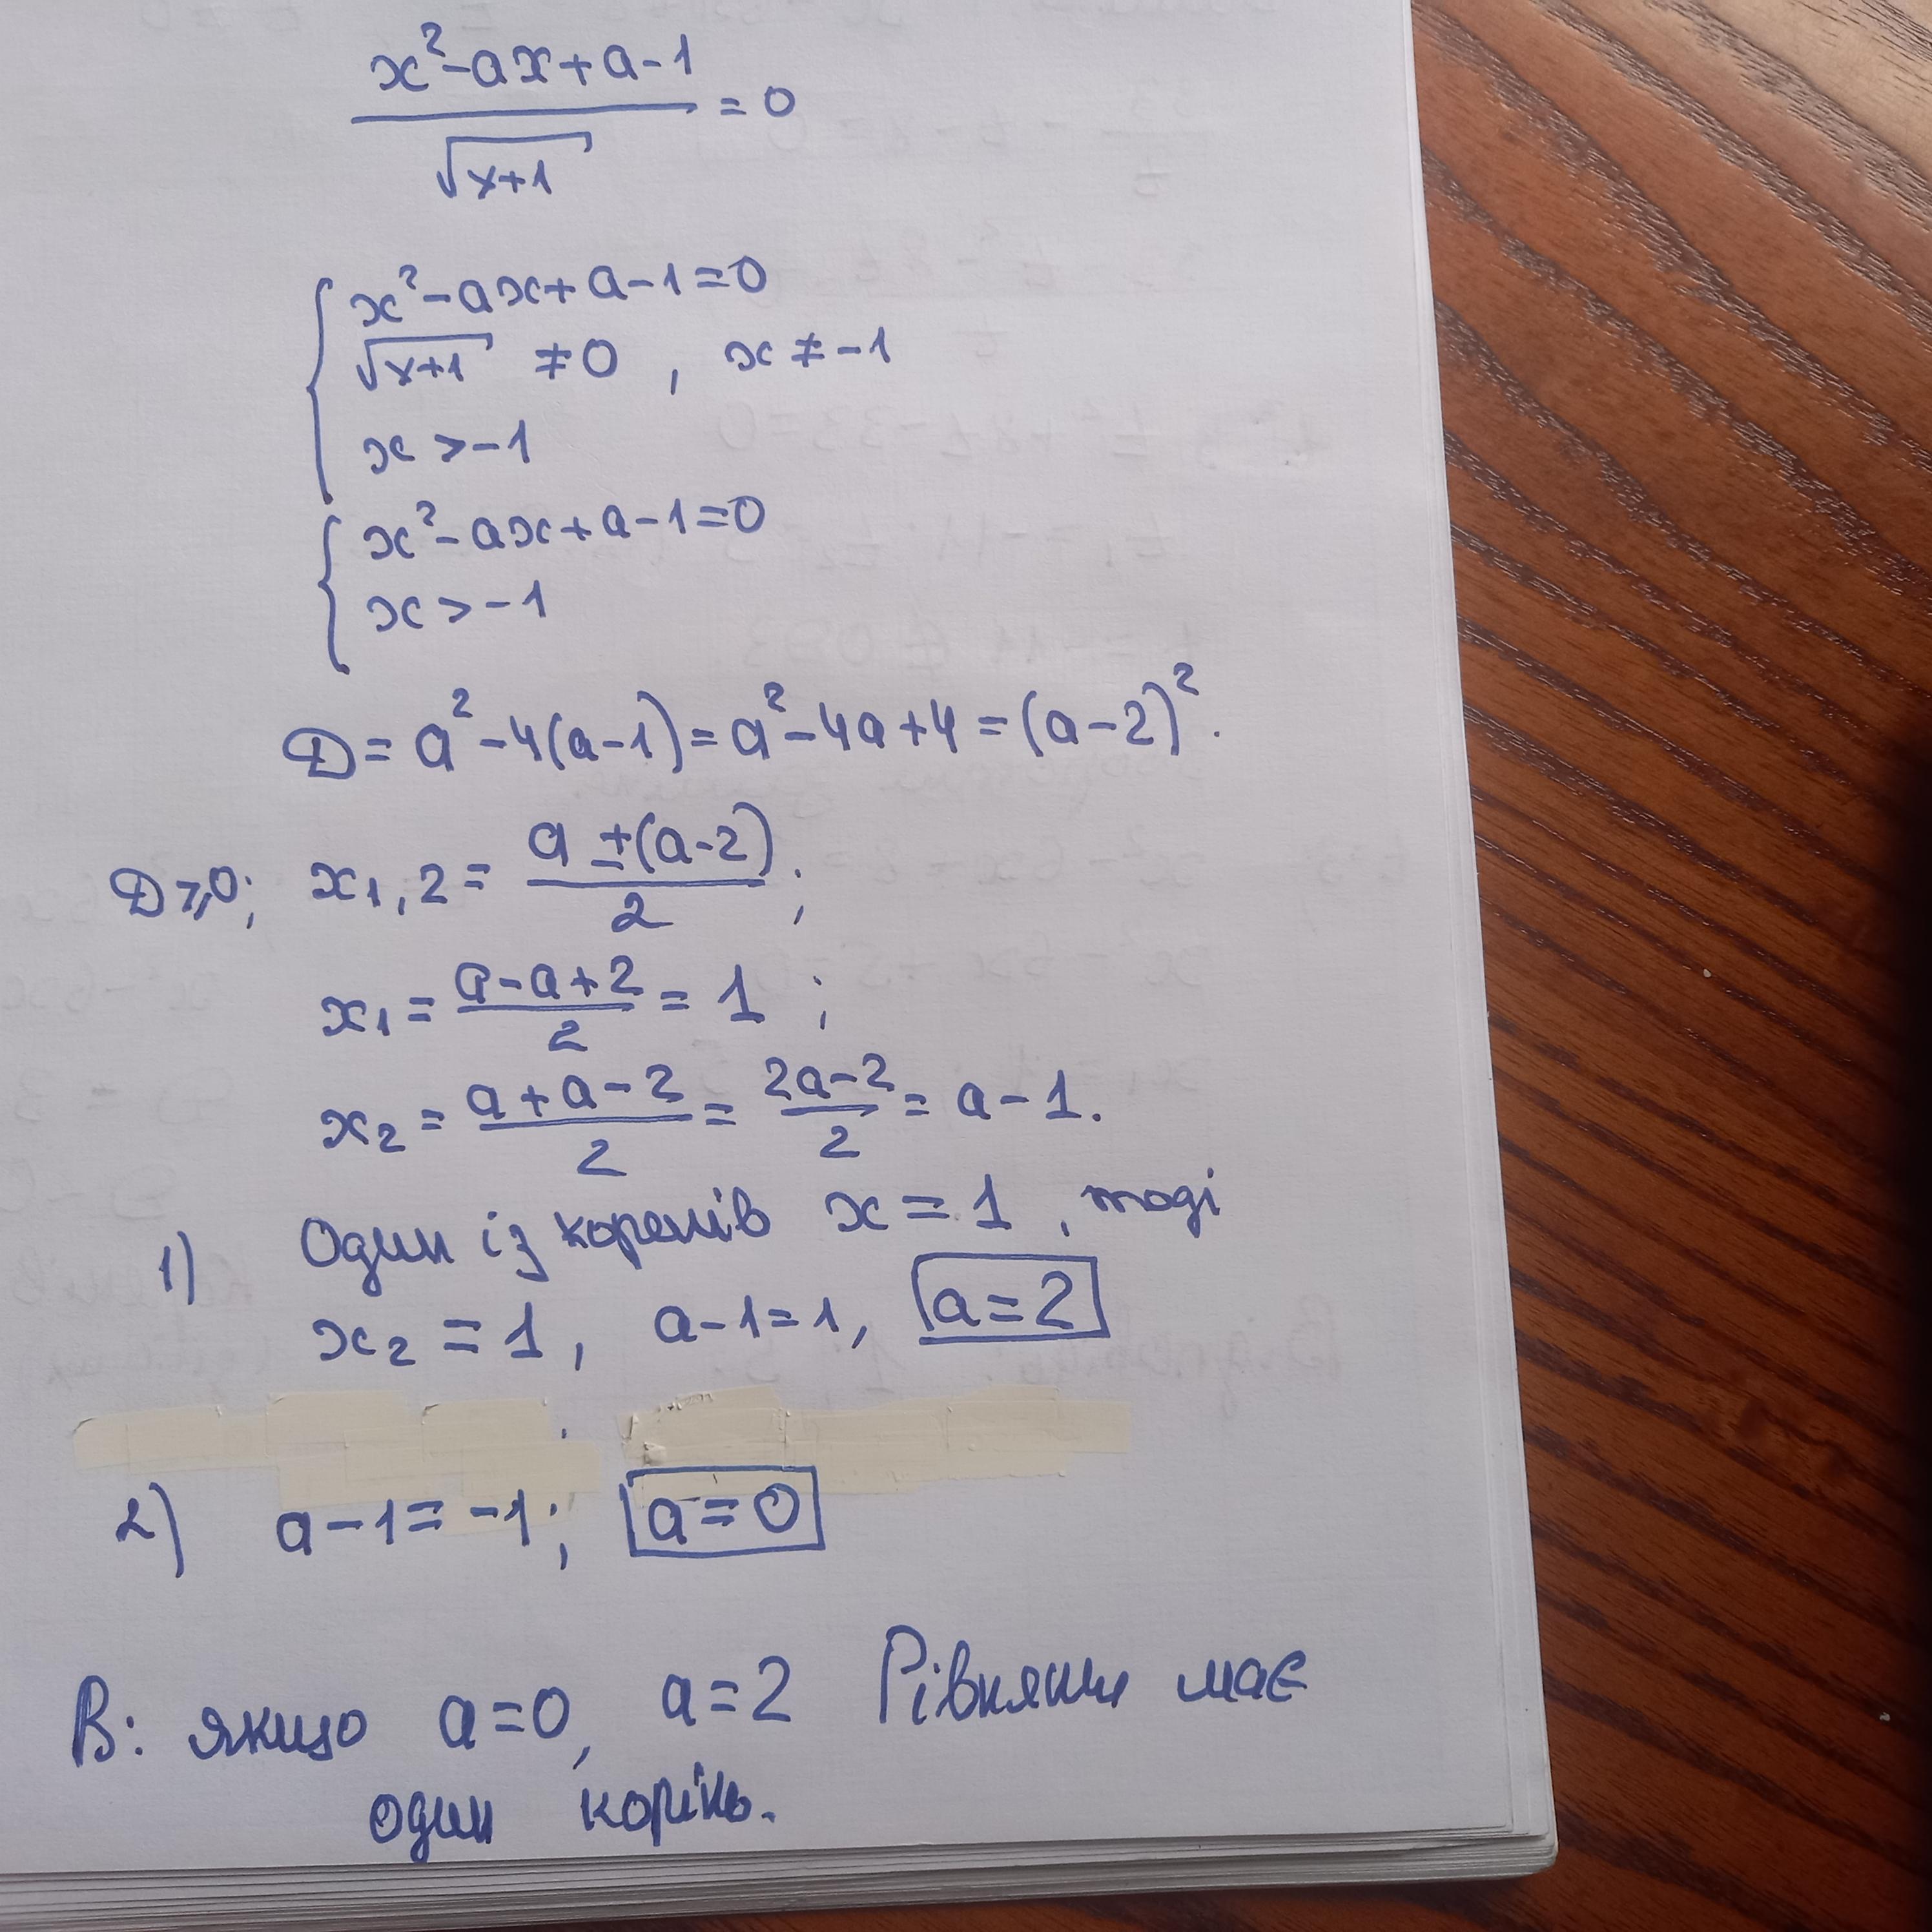 x²-ax+a-1
――― = 0
√x+1
x²-ax+a-1=0
√x+1 ≠0 , x≠-1
x>-1
x²-ax+a-1=0
x>-1
D=a²-4(a-1)=a²-4a+4=(a-2)².
D⩾0; x1,2= a±(a-2)/2;
x1= a-a+2/2 = 1 ;
x2= a+a-2/2 = 2a-2/2 = a-1.
1) Один із коренів x=1, тоді
x2=1, a-1=1, a=2
2) a-1=-1; a=0
В: якщо a=0, a=2 Рівняння має
один корінь.